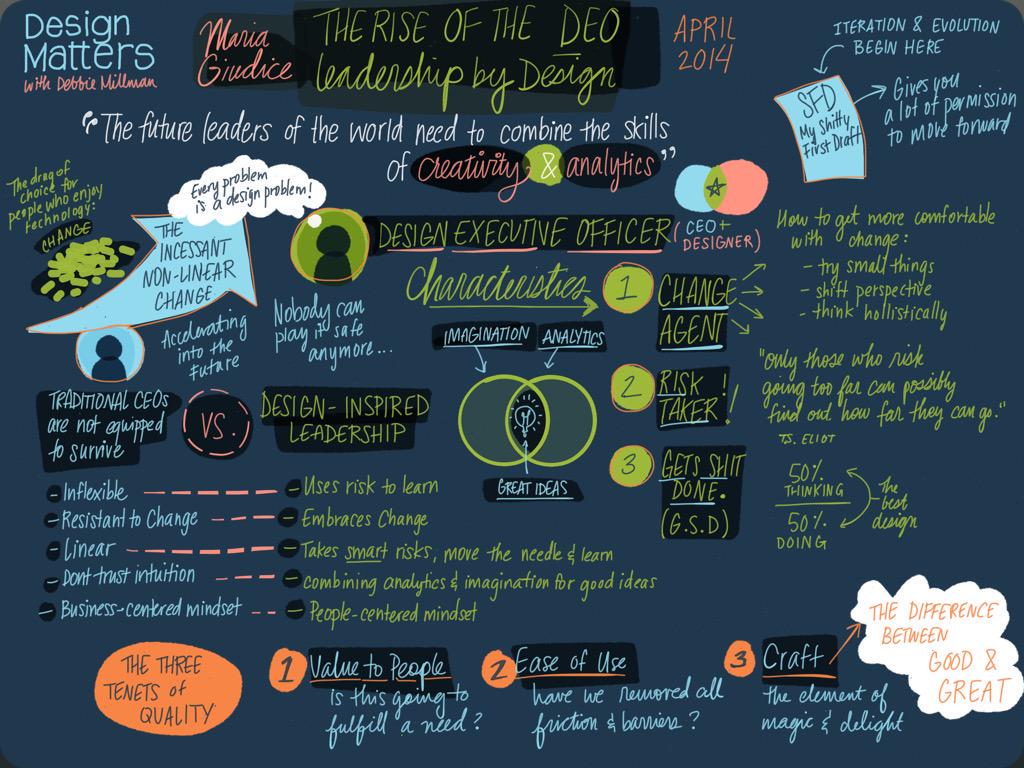 Design
Matters
with Debbie Millman
Maria
Giudice
THE RISE OF THE DEO
leadership by Design
APRIL
2014
ITERATION & EVOLUTION
BEGIN HERE
SFD
My Shitty
First Draft
Gives you
a lot of permission
to move forward
"The future leaders of the world need to combine the skills
of creativity & analytics"
The drug of
choice for
people who enjoy
technology:
CHANGE
Every problem
is a design problem!
THE
INCESSANT
NON-LINEAR
CHANGE
Accelerating
into the
Future
Nobody can
play it safe
anymore...
DESIGN EXECUTIVE OFFICER
(CEO+
DESIGNER)
Characteristics
1
CHANGE
AGENT
How to get more comfortable
with change:
- try small things
- shift perspective
- think hollistically
IMAGINATION
ANALYTICS
GREAT IDEAS
2
RISK !
TAKER!
"only those who risk
going too far can possibly
find out how far they can go."
TS. ELIOT
3
GETS SHIT
DONE.
(G.S.D)
50%
THINKING
50%
DOING
The
best
design
TRADITIONAL CEOs
are not equipped
to survive
VS.
DESIGN-INSPIRED
LEADERSHIP
- Inflexible
- Uses risk to learn
- Resistant to Change
- Embraces Change
- Linear
- Takes smart risks, move the needle & learn
- Dont trust intuition
- combining analytics & imagination for good ideas
- Business-centered mindset
- People-centered mindset
THE THREE
TENETS of
QUALITY
1
Value to People
is this going to
fulfill a need?
2
Ease of Use
have we removed all
friction & barriers?
3
Craft
the element of
magic & delight
THE DIFFERENCE
BETWEEN
GOOD &
GREAT